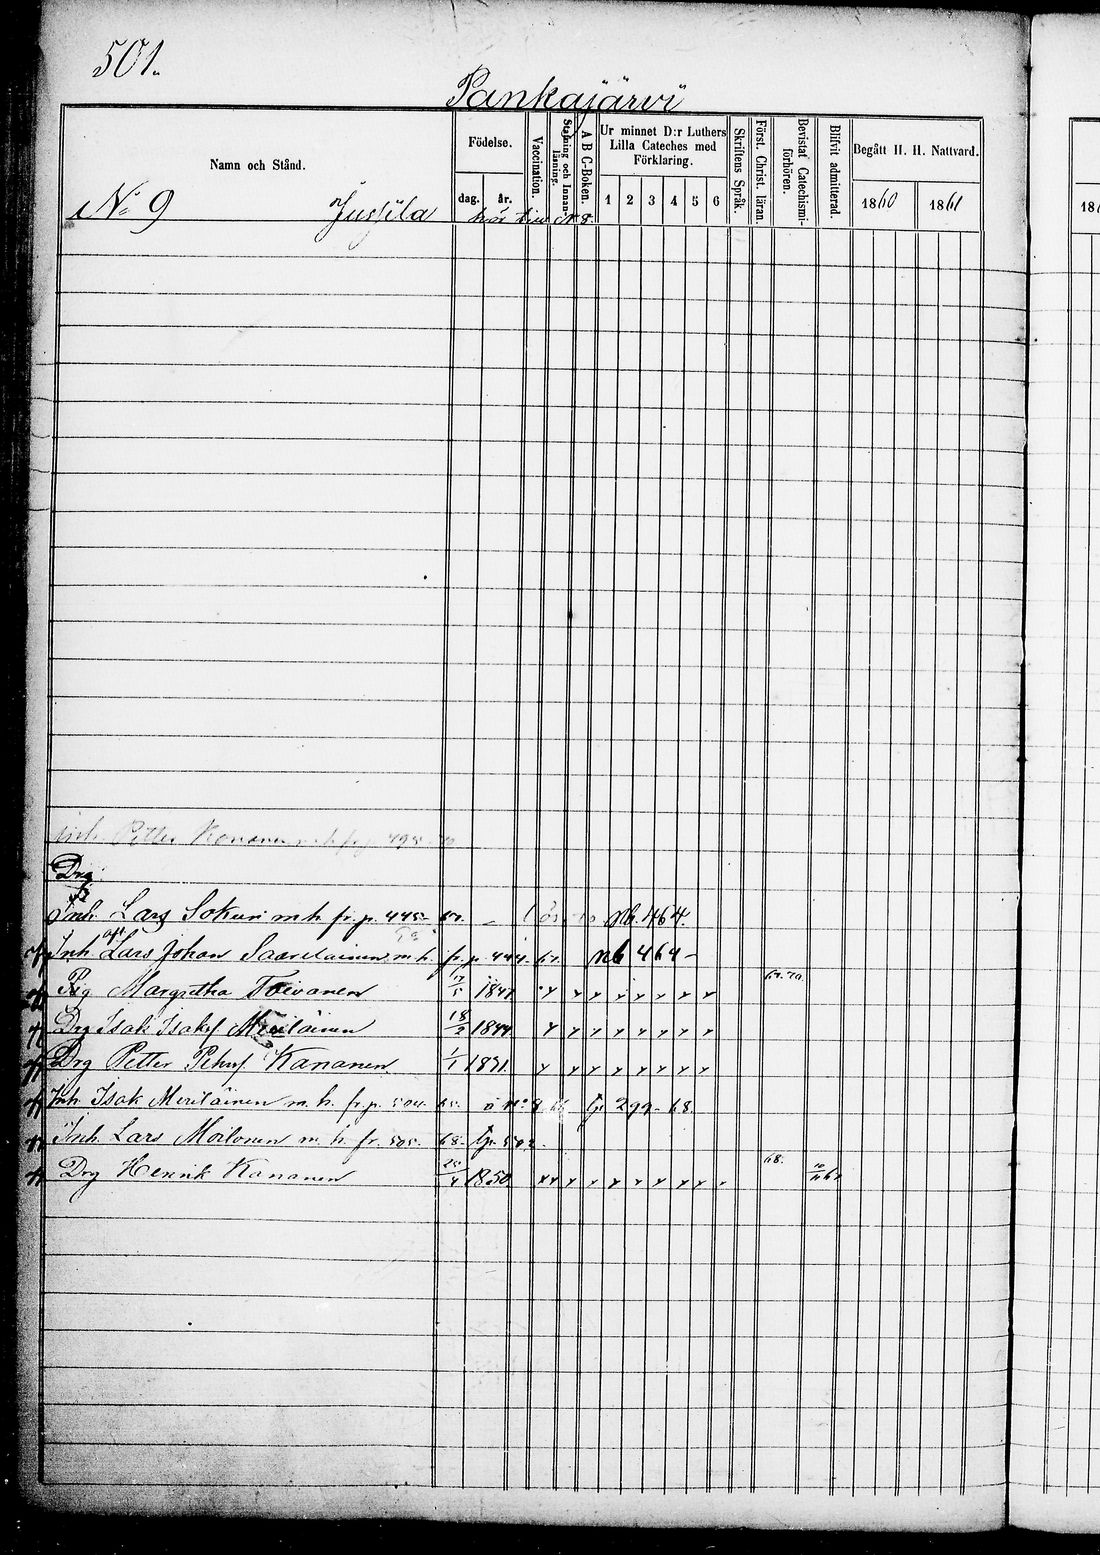 501.
Pankajärvi
Namn och Stånd.
Födelse.
dag. år.
Vaccination.
Stafning och Innanläsning.
A B C-Boken.
Ur minnet D:r Luthers Lilla Cateches med Förklaring.
1 2 3 4 5 6
Skriftens Språk.
Först. Christ. läran.
Bevistat Catechismiförhören.
Blifvit admitterad.
Begått H. H. Nattvard.
1860 1861
No 9 Jussila N 8.
Inh. Petter Kananen m. h. fr. p. 495
Drg
Inh Lars Sokuri m h. fr. p. 445 Nb. 464.
Inh Lars Johan Saarelainen m. h. fr. p 444. 67. Nb 464 –
Pig Margretha Toivanen 5 1847 69. 70.
Drg Isak Isaksf Meriläinen 18/9 1844
Drg Petter Petersf Kananen 1/1 1831
Inh. Isak Meriläinen m. h. fr. p. 504. 65. 299. 68.
Inh. Lars Moilanen m. h. fr. 505. 68.
Drg Henrik Kananen 4 1850. 68.